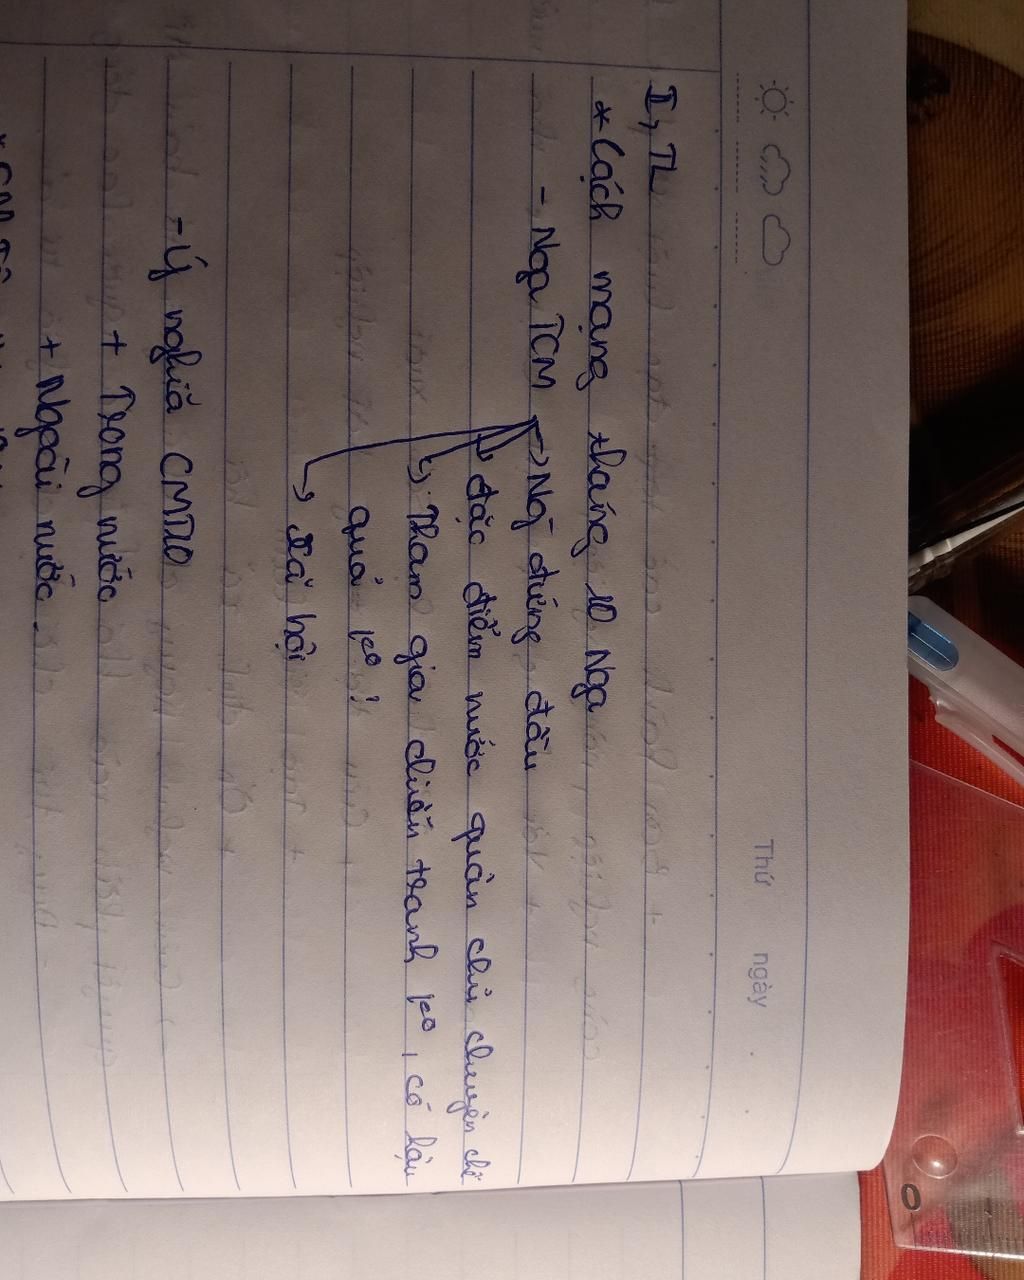 Thứ ngày
I, TL
* Cách mạng tháng 10 Nga
- Nga TCM → Ng̀ đứng đầu
→ đặc điểm nước quân chủ chuyên chế
→ Tham gia chiến tranh ko, có hậu
quả ko?
→ xã hội
- Ý nghĩa CMT10
+ Trong nước
+ Ngoài nước.
0